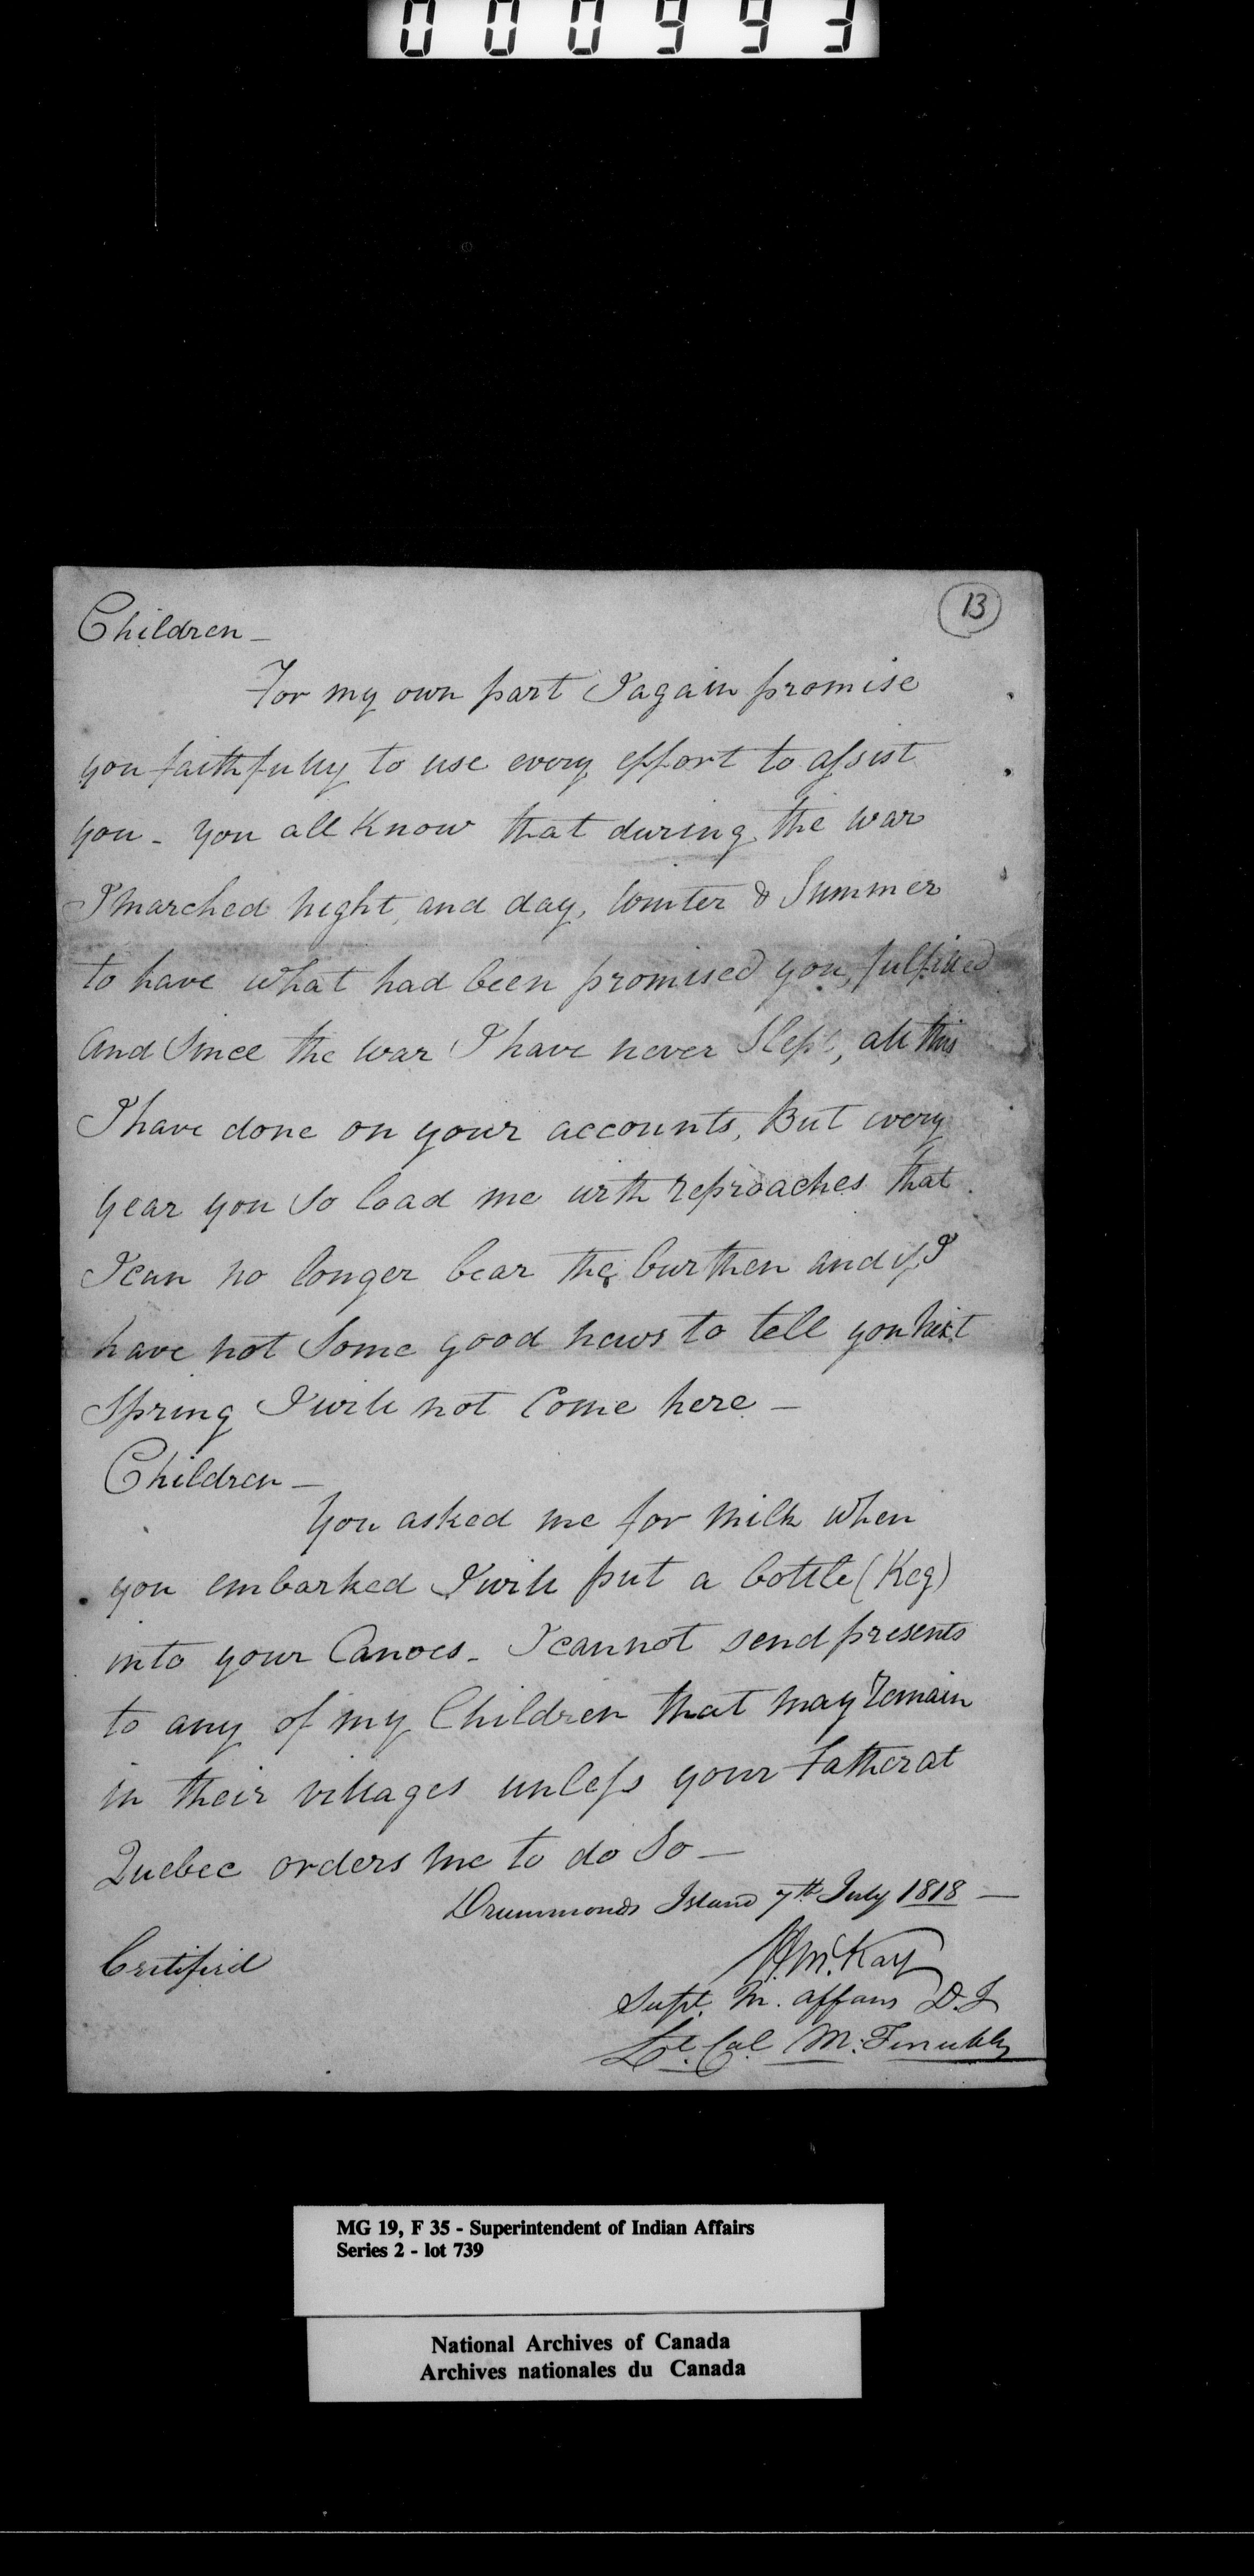 000993
13
Children –
For my own part I again promise
you faithfully to use every effort to assist
you – You all Know that during the war
I marched night, and day, Winter & Summer
to have what had been promised you, fulfilled
And Since the war I have never Slept, all this
I have done on your accounts, But every
year you so load me with reproaches that
I can no longer bear the burthen and if I
have not Some good news to tell you next
Spring I will not Come here –
Children –
You asked me for milk when
you embarked I will put a bottle (Keg)
into your Canoes – I cannot send presents
to any of my Children that may remain
in their villages unless your Father at
Quebec orders me to do So –
Drummonds Island 7th July 1818 –
Certified
McKay
Supt. In. affairs D. I
Lt. Col. M.
MG 19, F 35 - Superintendent of Indian Affairs
Series 2 - lot 739
National Archives of Canada
Archives nationales du Canada